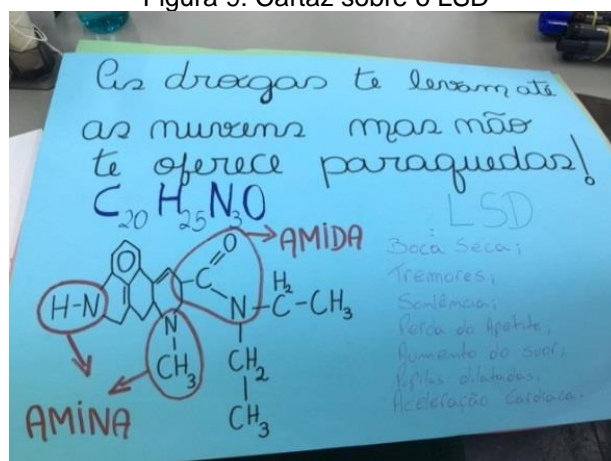 Figura 9: Cartaz sobre o LSD
As drogas te levam até
as nuvens mas não
te oferece paraquedas!
C20H25N3O
LSD
AMIDA
Boca Seca;
Tremores;
Sonlência;
Perda do Apetite;
Aumento do suor;
Pupilas dilatadas;
Aceleração Cardíaca.
O
C
H-N
N-C-CH3
H2
N
CH3
CH2
CH3
AMINA